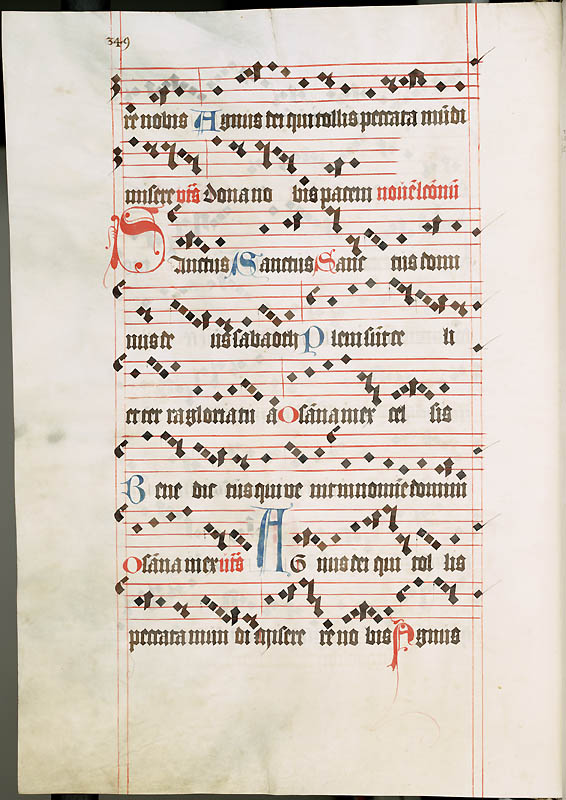 349
re nobis Agnus dei qui tollis peccata mūdi
misere vt̄s Dona no bis pacem
Sanctus Sanctus Sanc tus domi
nus de us sabaoth Pleni sūt ce li
et ter ra gloria tu a Osāna in ex cel sis
Bene dic tus qui ve nit in nomīe domini
Osāna in ex vt̄s Ag nus dei qui tol lis
peccata mun di misere re no bis Agnus